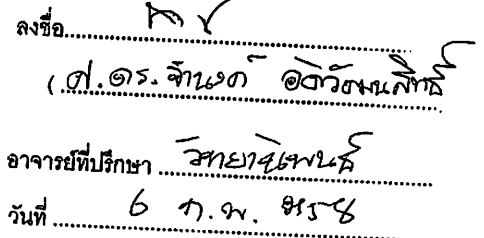 ลงชื่อ
(ศ.ดร. จำนงค์ อดิวัฒนสิทธิ์
อาจารย์ที่ปรึกษา วิทยานิพนธ์
วันที่ 6 ก.พ.